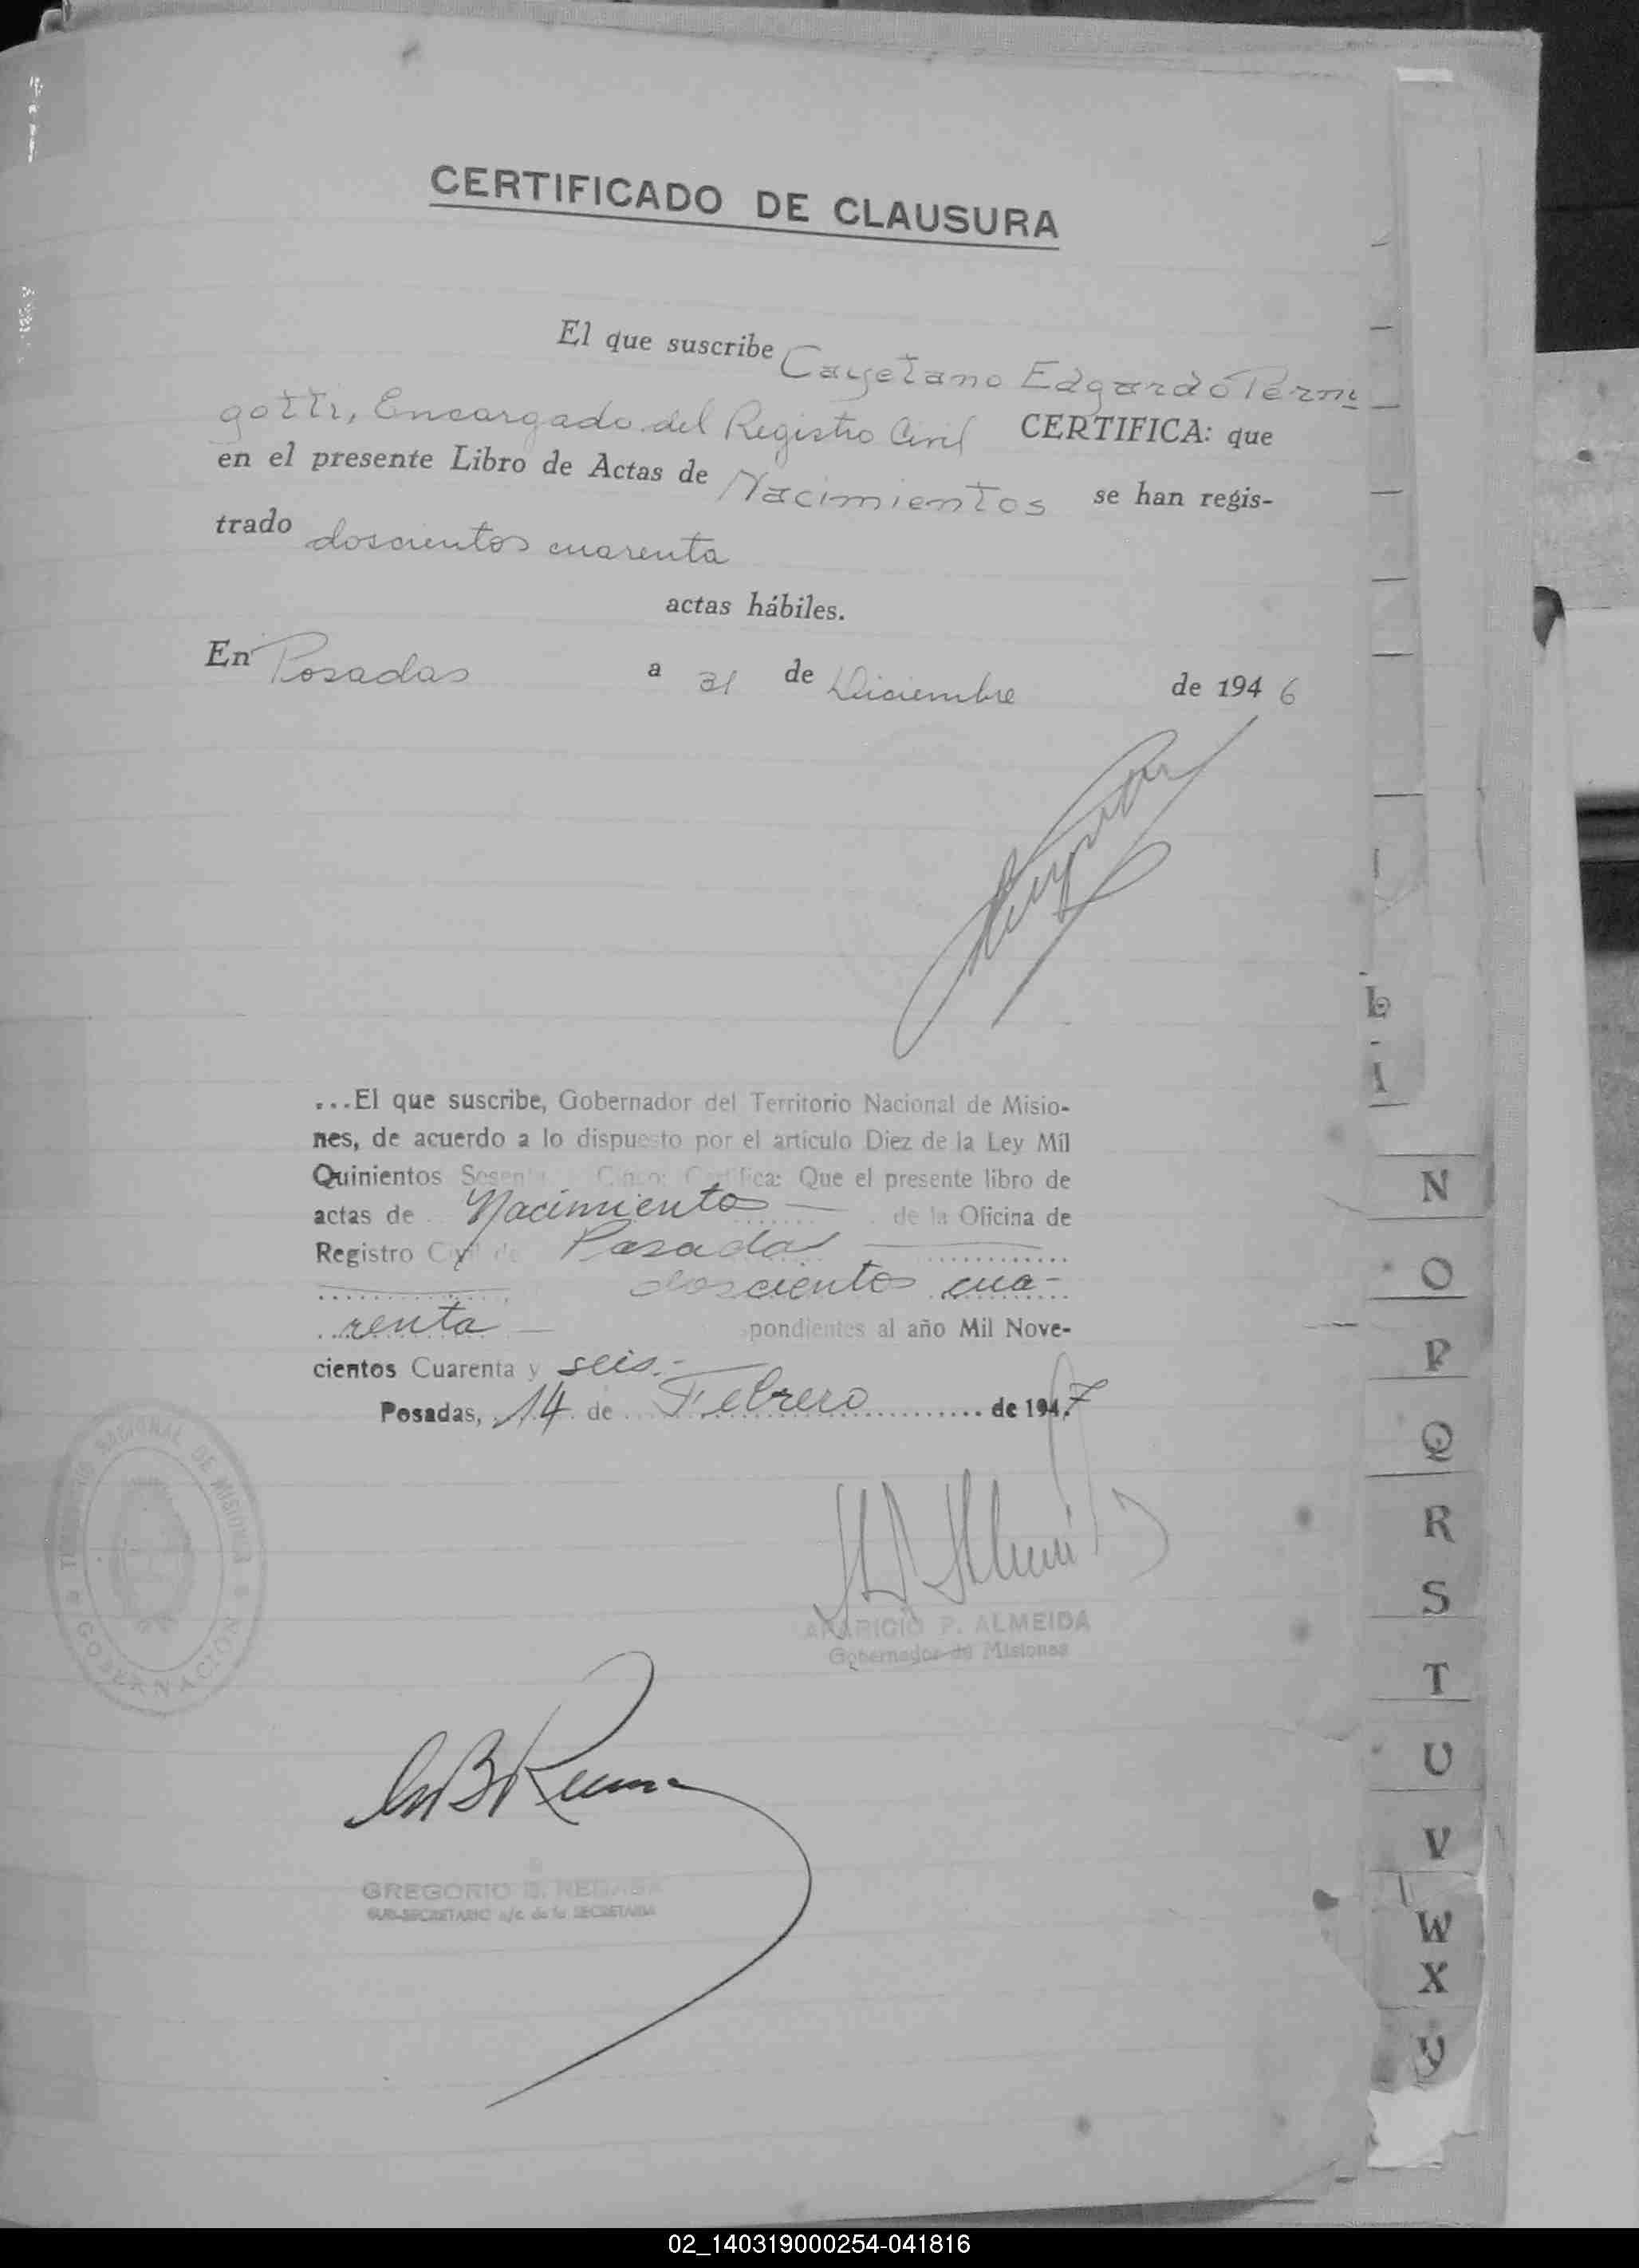 CERTIFICADO DE CLAUSURA
El que suscribe Cayetano Edgardo Perni
gotti, Encargado del Registro Civil CERTIFICA: que
en el presente Libro de Actas de Nacimientos se han regis-
trado doscientos cuarenta
actas hábiles.
En Posadas a 31 de Diciembre de 1946
...El que suscribe, Gobernador del Territorio Nacional de Misio-
nes, de acuerdo a lo dispuesto por el artículo Diez de la Ley Mil
Quinientos Sesenta Cinco: Certifica: Que el presente libro de
actas de Nacimientos de la Oficina de
Registro Civil de Posadas
doscientos cua-
renta pondientes al año Mil Nove-
cientos Cuarenta y seis.-
Posadas, 14 de Febrero de 1947
TERRITORIO NACIONAL DE MISIONES
GOBERNACION
APARICIO P. ALMEIDA
Gobernador de Misiones
GREGORIO B.
SUB-SECRETARIO a/c. de la SECRETARIA
L
N
O
P
Q
R
S
T
U
V
W
X
Y
02_140319000254-041816